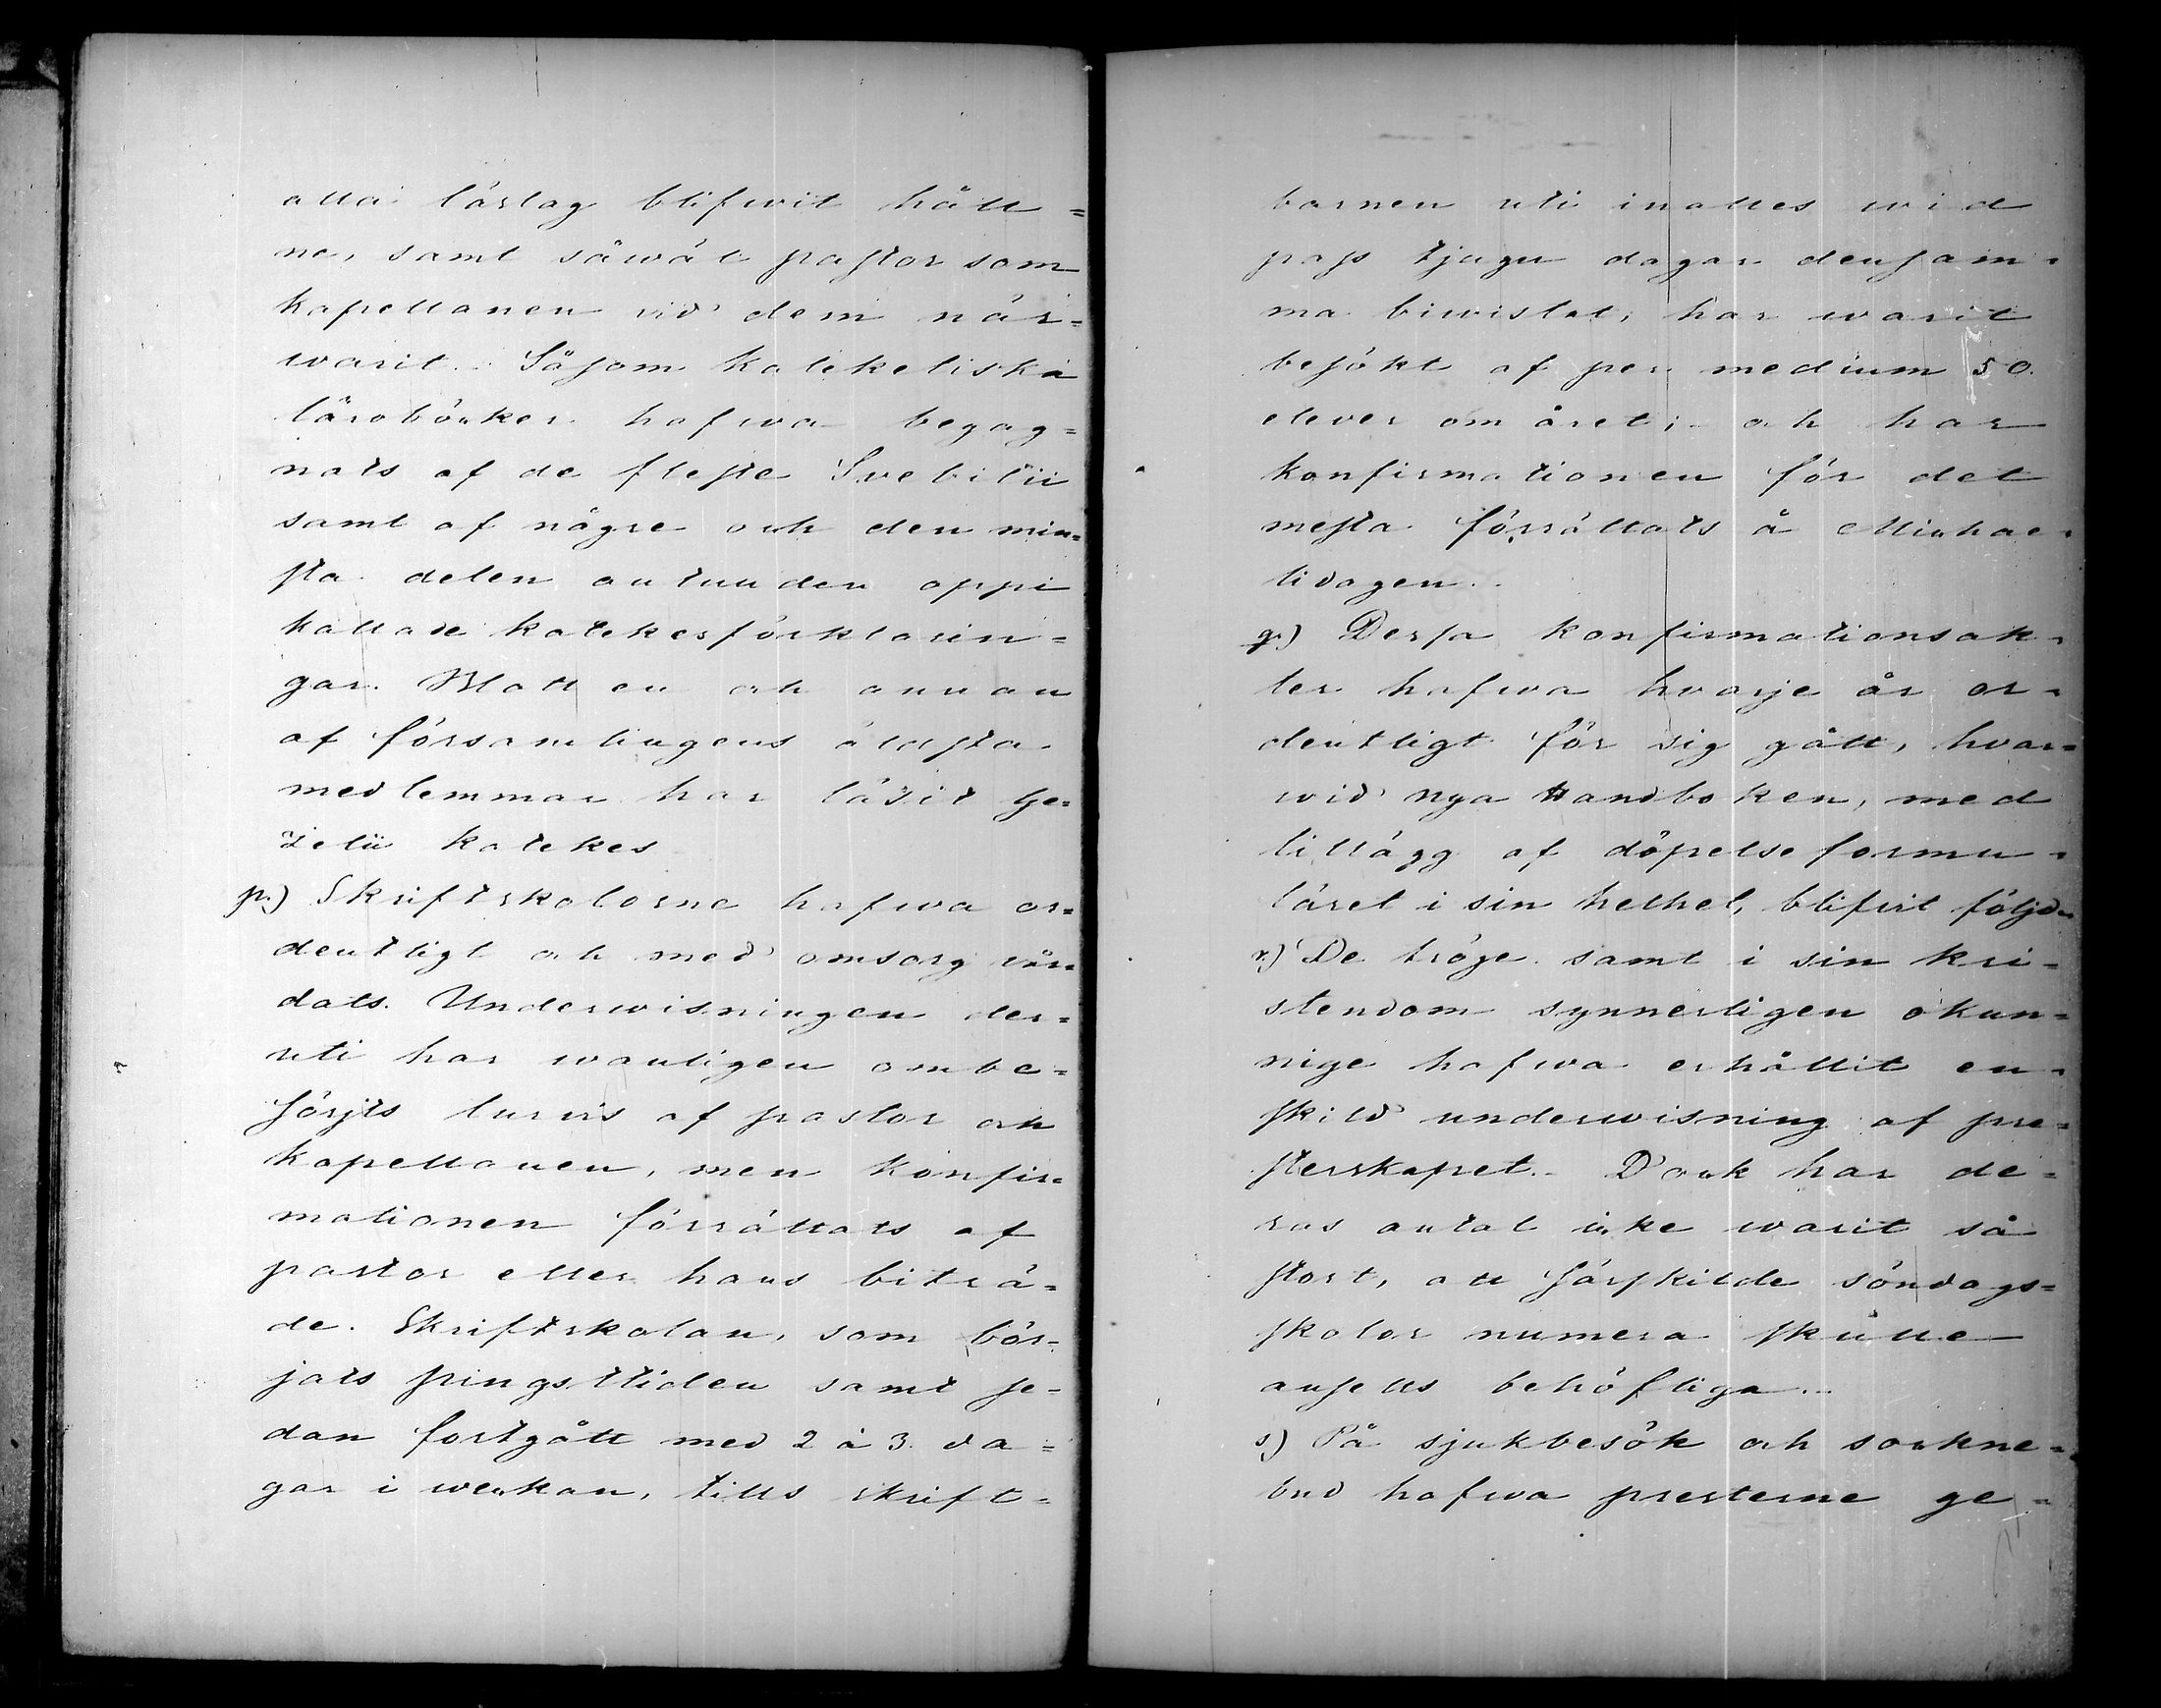 alla läslag blifwit håll=
ne, samt såwäl pastor som
kapellanen vid dem när=
warit. Såsom katekeliska
läroböcker hafwa begag=
nats af de fleste Svebilii
samt af någre och den min=
sta delen antunden oppi
kallade katekesförklarin=
gar. Blott en och annan
af församlingens äldsta
medlemmar har läsit Ge=
zelii katekes
p.) Skriftskolorne hafwa or=
dentligt och med omsorg vår=
dats. Underwisningen der=
uti har wanligen ombe=
sörjts turvis af pastor och
kapellanen, men konfir=
mationen förrättats af
pastor eller hans biträ=
de. Skriftskolan, som bör=
jats pingsttiden samt se=
dan fortgått med 2 à 3 da=
gar i weckan, tills skrift=
barnen uti inalles wid
pass tjugu dagar densam=
ma biwistat, har warit
besökt af per medium 50
elever om året; och har
konfirmationen för det
mesta förrättats å Michae=
lidagen.
q.) Dessa konfirmationsak=
ter hafwa hvarje år or=
dentligt för sig gått, hvar=
wid nya Handboken, med
tillägg af döpelseformu=
läret i sin helhet, blifvit följd.
r.) De tröge samt i sin kri=
stendom synnerligen okun=
nige hafwa erhållit en=
skild underwisning af pre=
sterskapet. Dock har de=
ras antal icke warit så
stort, att särskilde söndags=
skolor numera skulle
ansetts behöfliga.
s) På sjukbesök och sockne=
bud hafwa presterne ge=